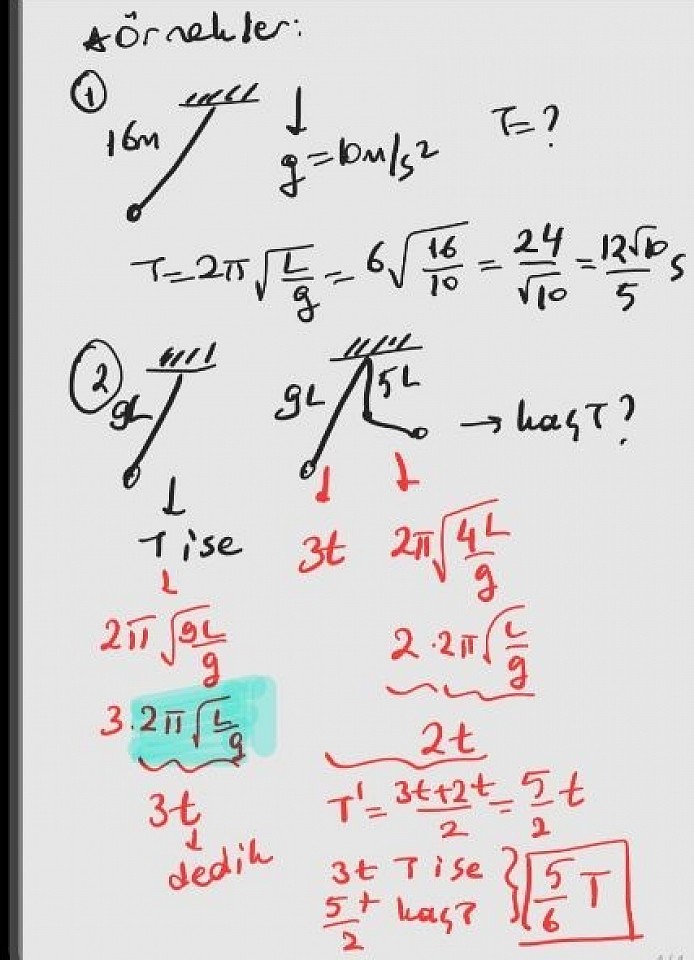 ★ Örnekler:
① 16m g=10m/s² T=?
T=2π√(L/g) = 6√(16/10) = 24/√10 = 12√10/5 s
② 9L 9L 5L → kaç T?
T ise 3t 2π√(4L/g)
2π√(9L/g) 2·2π√(L/g)
3·2π√(L/g) 2t
3t T' = (3t+2t)/2 = 5/2 t
dedik 3t T ise
5/2 t kaç? 5/6 T